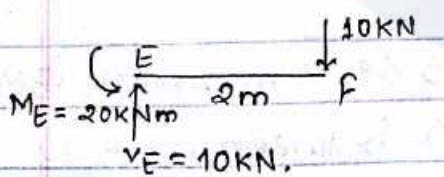 10KN
E
2m
F
ME = 20KNm
VE = 10KN.